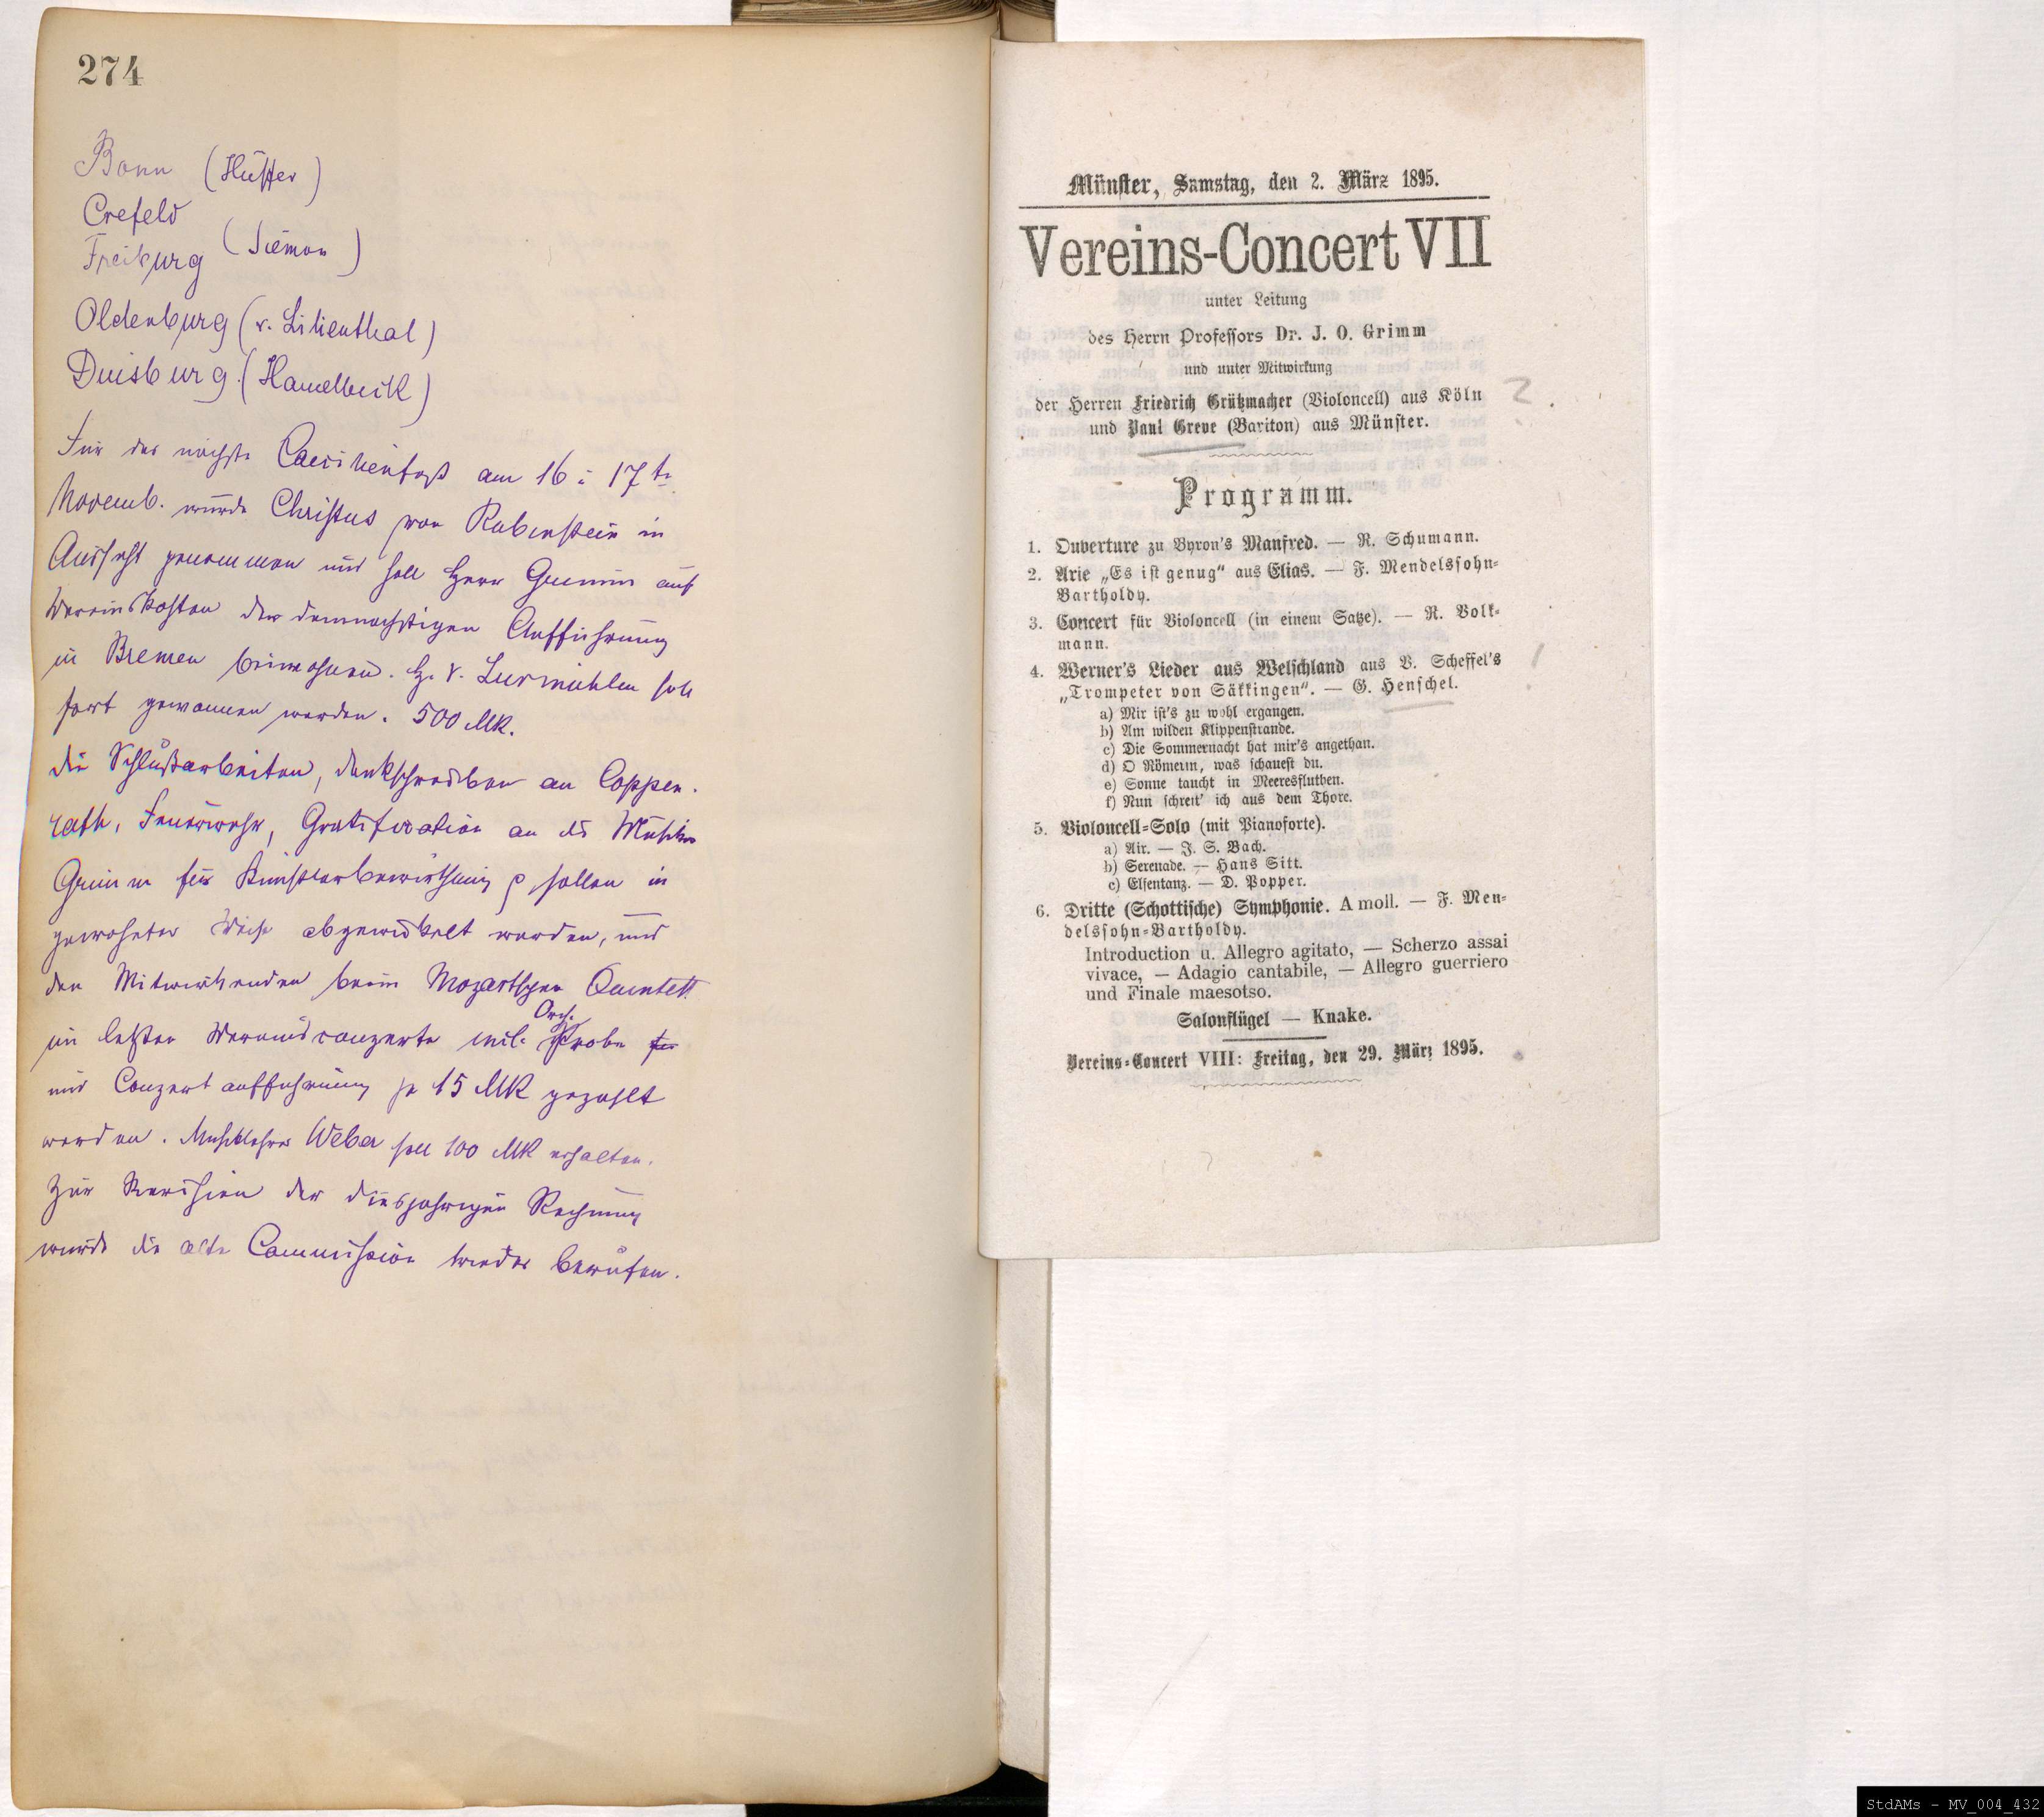 274
Bonn (Hüffer)
Crefeld
Freiburg (Siemon)
Oldenburg (v. Lilienthal)
Duisburg (Hamelbeck)
Für das nächste Caecilienfest am 16 u 17 te
Novemb. wurde Christus von Rubinstein in
Aussicht genommen und soll Herr Grimm auf
Vereinskosten der demnächstigen Aufführung
in Bremen beiwohnen. H. v. Zurmühlen sol
fort gewonnen werden. 500 MK.
die Schlußarbeiten, Dankschreiben an Coppen-
rath, Feuerwehr, Gratification an die Musiker
Grimm für Künstlerbewirthung p sollen in
gewohnter Weise abgewickelt werden, und
den Mitwirkenden beim Mozartschen Quintett
im letzten Vereinsconzerte incl. Orch. Probe
und Conzertaufführung je 15 MK gezahlt
werden. Musiklehrer Weber soll 100 MK erhalten.
Zur Revision der diesjährigen Rechnung
wurde die alte Commission wieder berufen.
Münster, Samstag, den 2. März 1895.
Vereins-Concert VII
unter Leitung
des Herrn Professors Dr. J. O. Grimm
und unter Mitwirkung
der Herren Friedrich Grützmacher (Violoncell) aus Köln
und Paul Greve (Bariton) aus Münster.
2.
Programm.
1. Ouverture zu Byron's Manfred. — R. Schumann.
2. Arie „Es ist genug" aus Elias. — F. Mendelssohn-
Bartholdy.
3. Concert für Violoncell (in einem Satze). — R. Volk-
mann.
4. Werner's Lieder aus Welschland aus V. Scheffel's
„Trompeter von Säkkingen". — G. Henschel.
a) Mir ist's zu wohl ergangen.
b) Am wilden Klippenstrande.
c) Die Sommernacht hat mir's angethan.
d) O Römerin, was schauest du.
e) Sonne taucht in Meeresfluthen.
f) Nun schreit' ich aus dem Thore.
5. Violoncell-Solo (mit Pianoforte).
a) Air. — J. S. Bach.
b) Serenade. — Hans Sitt.
c) Elfentanz. — D. Popper.
6. Dritte (Schottische) Symphonie. A moll. — F. Men-
delssohn-Bartholdy.
Introduction u. Allegro agitato, — Scherzo assai
vivace, — Adagio cantabile, — Allegro guerriero
und Finale maesotso.
Salonflügel — Knake.
Vereins-Concert VIII: Freitag, den 29. März 1895.
StdAMs - MV_004_432